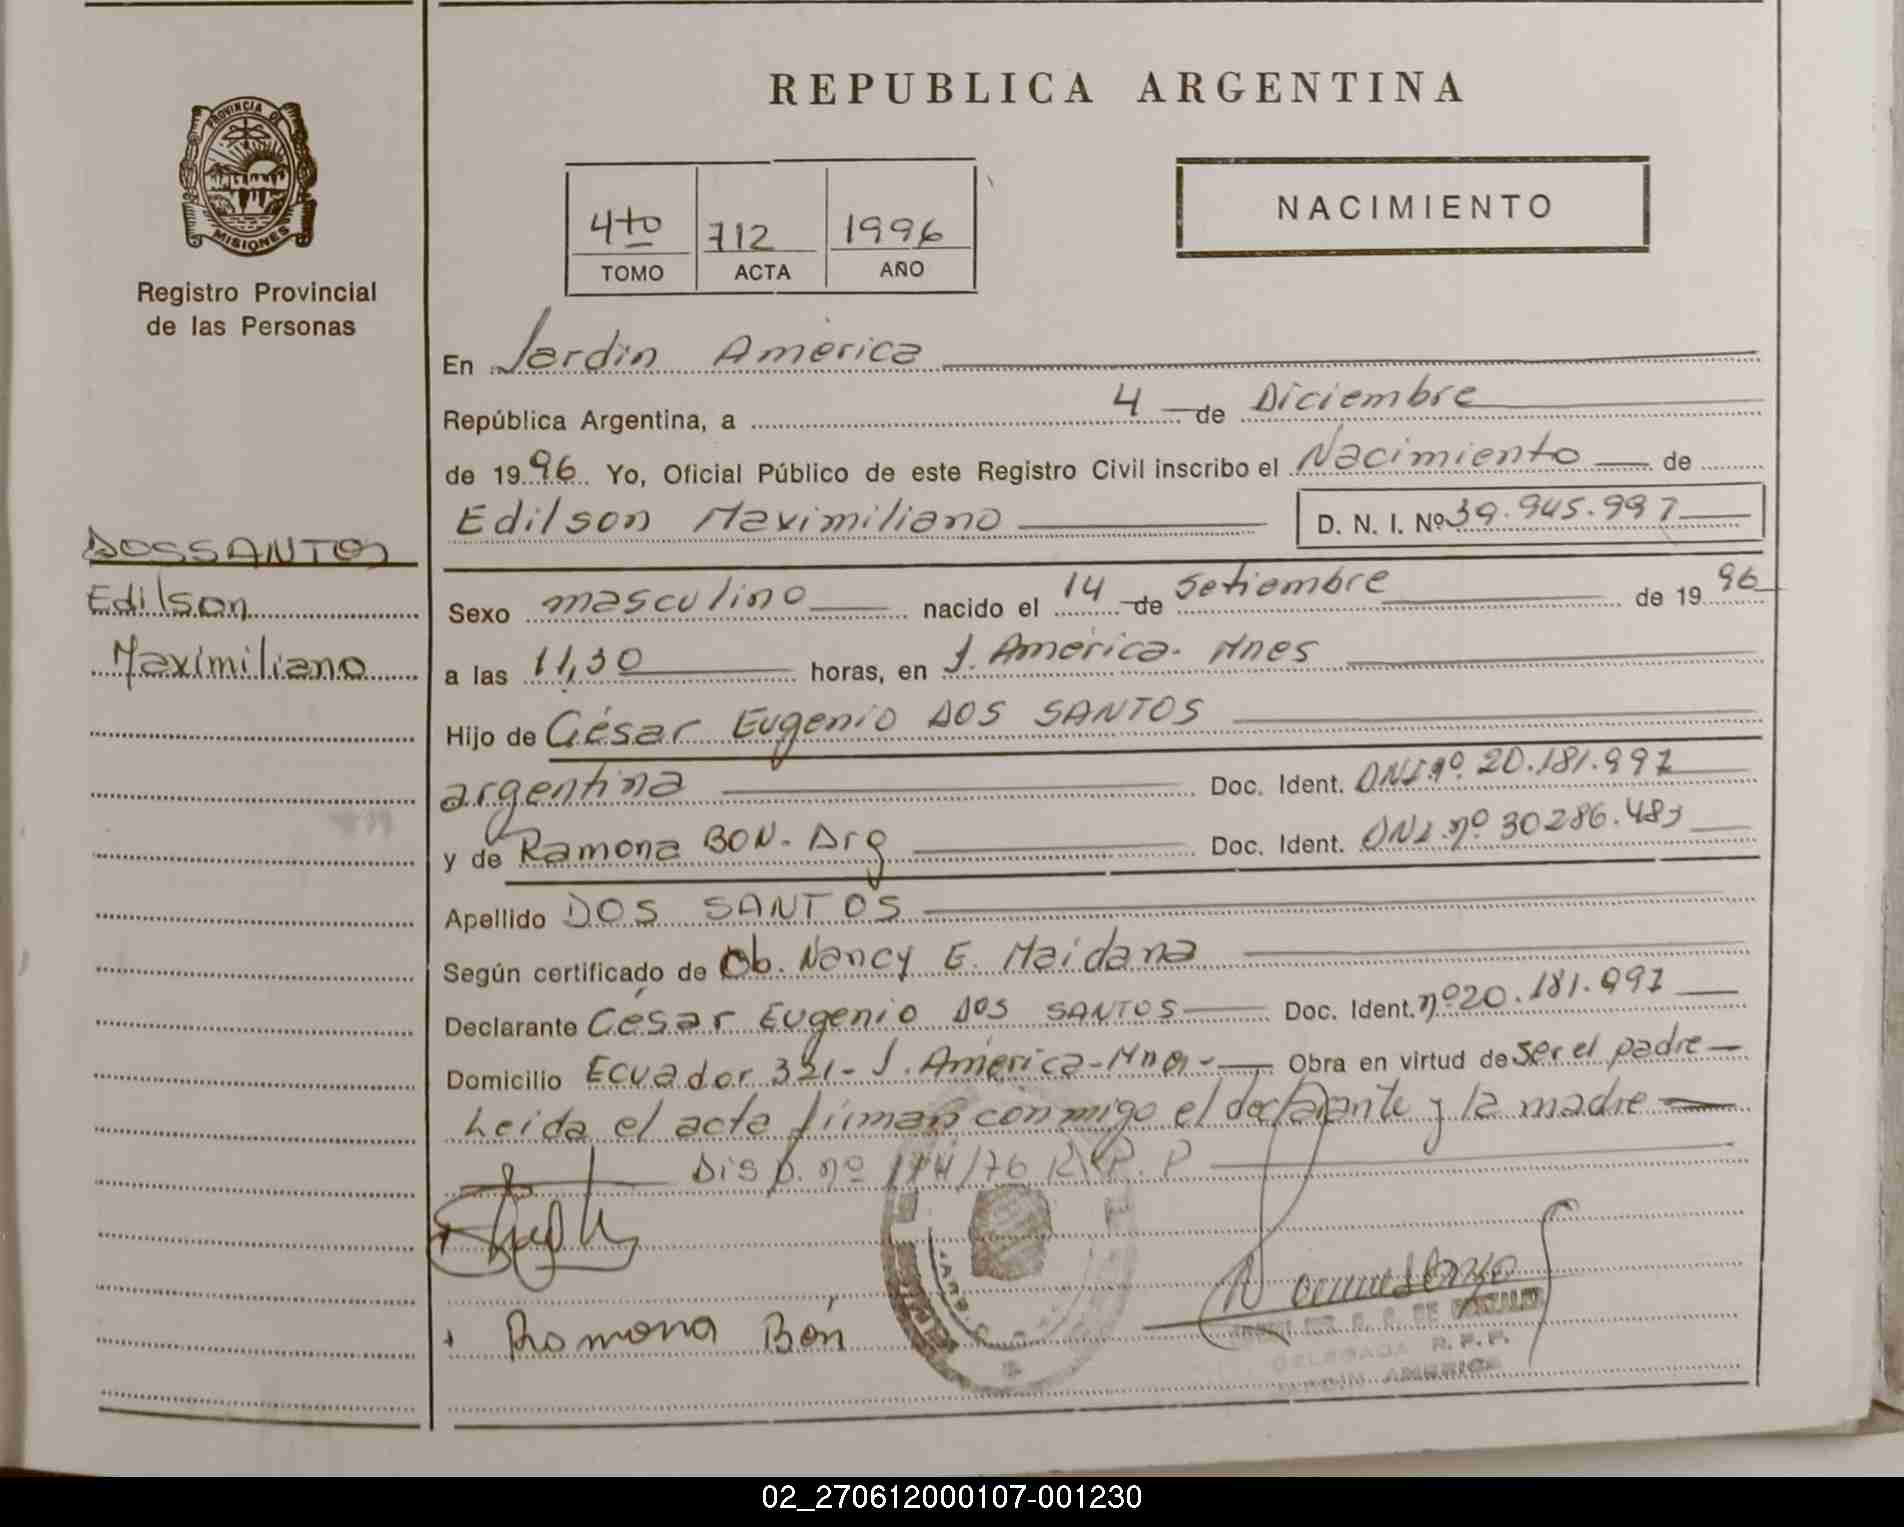 PROVINCIA DE
MISIONES
Registro Provincial
de las Personas
DOS SANTOS
Edilson
Maximiliano
REPUBLICA ARGENTINA
4to 712 1996
TOMO ACTA AÑO
NACIMIENTO
En Jardin America
República Argentina, a 4 de Diciembre
de 1996. Yo, Oficial Público de este Registro Civil inscribo el Nacimiento de
Edilson Maximiliano D. N. I. Nº 39.945.997
Sexo masculino nacido el 14 de Setiembre de 1996
a las 11,30 horas, en J. América. Mnes
Hijo de César Eugenio DOS SANTOS
argentina Doc. Ident. DNI nº 20.181.997
y de Ramona BON. Arg Doc. Ident. DNI nº 30286.483
Apellido DOS SANTOS
Según certificado de Ob. Nancy E. Maidana
Declarante César Eugenio DOS SANTOS Doc. Ident. nº 20.181.997
Domicilio Ecuador 321- J. América- Obra en virtud de ser el padre
Leida el acta firman conmigo el declarante y la madre
Disp. nº 174/76 R.P.P
Ramona Bón
DE GONZALEZ
DELEGADA R.P.P.
JARDIN AMERICA
02_270612000107-001230